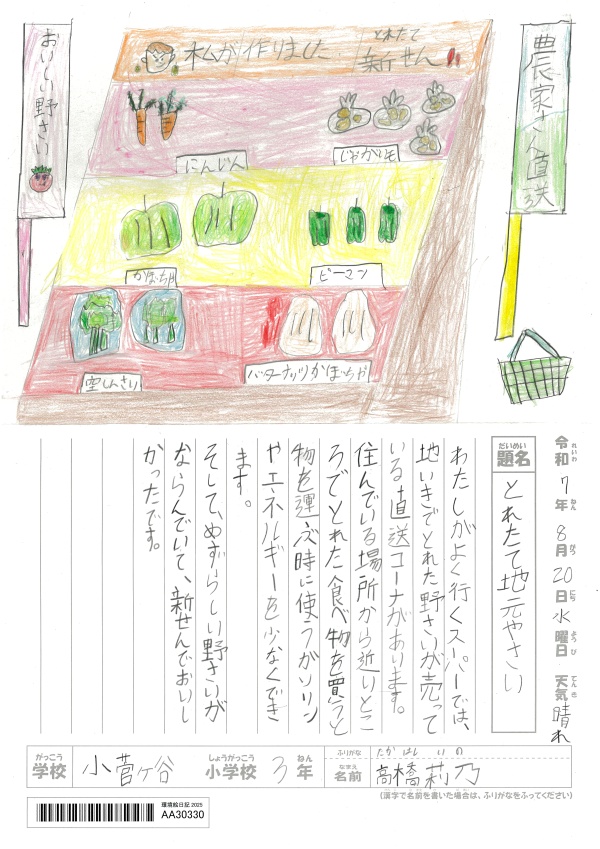 おいしい野さい
私が作りました
とれたて
新せん
農家さん直送
にんじん
じゃがいも
かぼちゃ
ピーマン
空しんさい
バターナッツかぼちゃ
令和7年8月20日水曜日 天気晴れ
れいわ ねん がつ にち ようび てんき
だいめい
題名
とれたて地元やさい
わたしがよく行くスーパーでは、
地いきでとれた野さいが売って
いる直送コーナがあります。
住んでいる場所から近いとこ
ろでとれた食べ物を買うと
物を運ぶ時に使うガソリン
やエネルギーを少なくでき
ます。
そして、めずらしい野さいが
ならんでいて、新せんでおいし
かったです。
がっこう しょうがっこう ねん
学校 小菅ケ谷 小学校 3年
ふりがな たかはし りの
なまえ
名前 高橋莉乃
(漢字で名前を書いた場合は、ふりがなをふってください)
環境絵日記 2025
AA30330